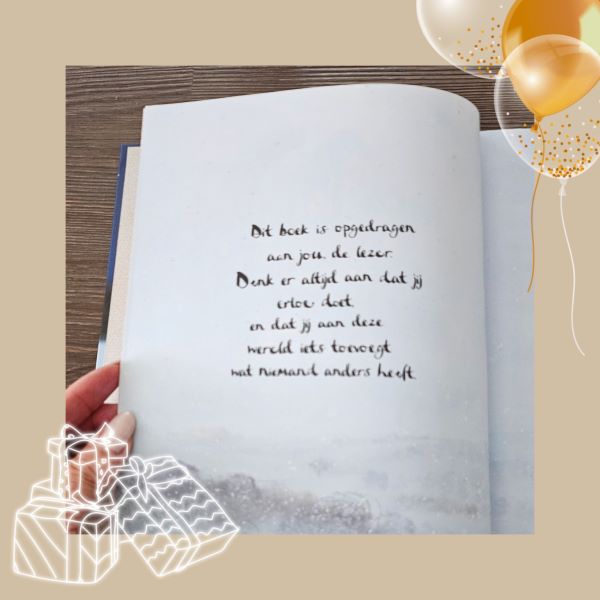 Dit boek is opgedragen
aan jou, de lezer.
Denk er altijd aan dat jij
ertoe doet
en dat jij aan deze
wereld iets toevoegt
wat niemand anders heeft.